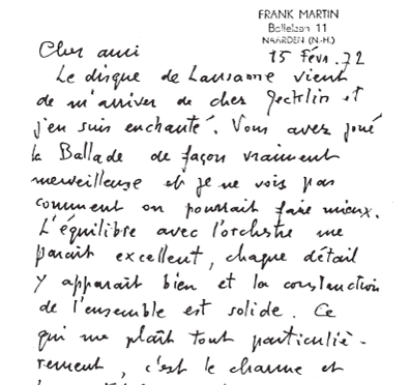 FRANK MARTIN
Bollelaan 11
NAARDEN (N.-H.)
15 Févr. 72
Cher ami
Le disque de Lausanne vient
de m'arriver de chez Jecklin et
j'en suis enchanté. Vous avez joué
la Ballade de façon vraiment
merveilleuse et je ne vois pas
comment on pourrait faire mieux.
L'équilibre avec l'orchestre me
paraît excellent, chaque détail
y apparaît bien et la construction
de l'ensemble est solide. Ce
qui me plaît tout particuliè-
rement, c'est le charme et